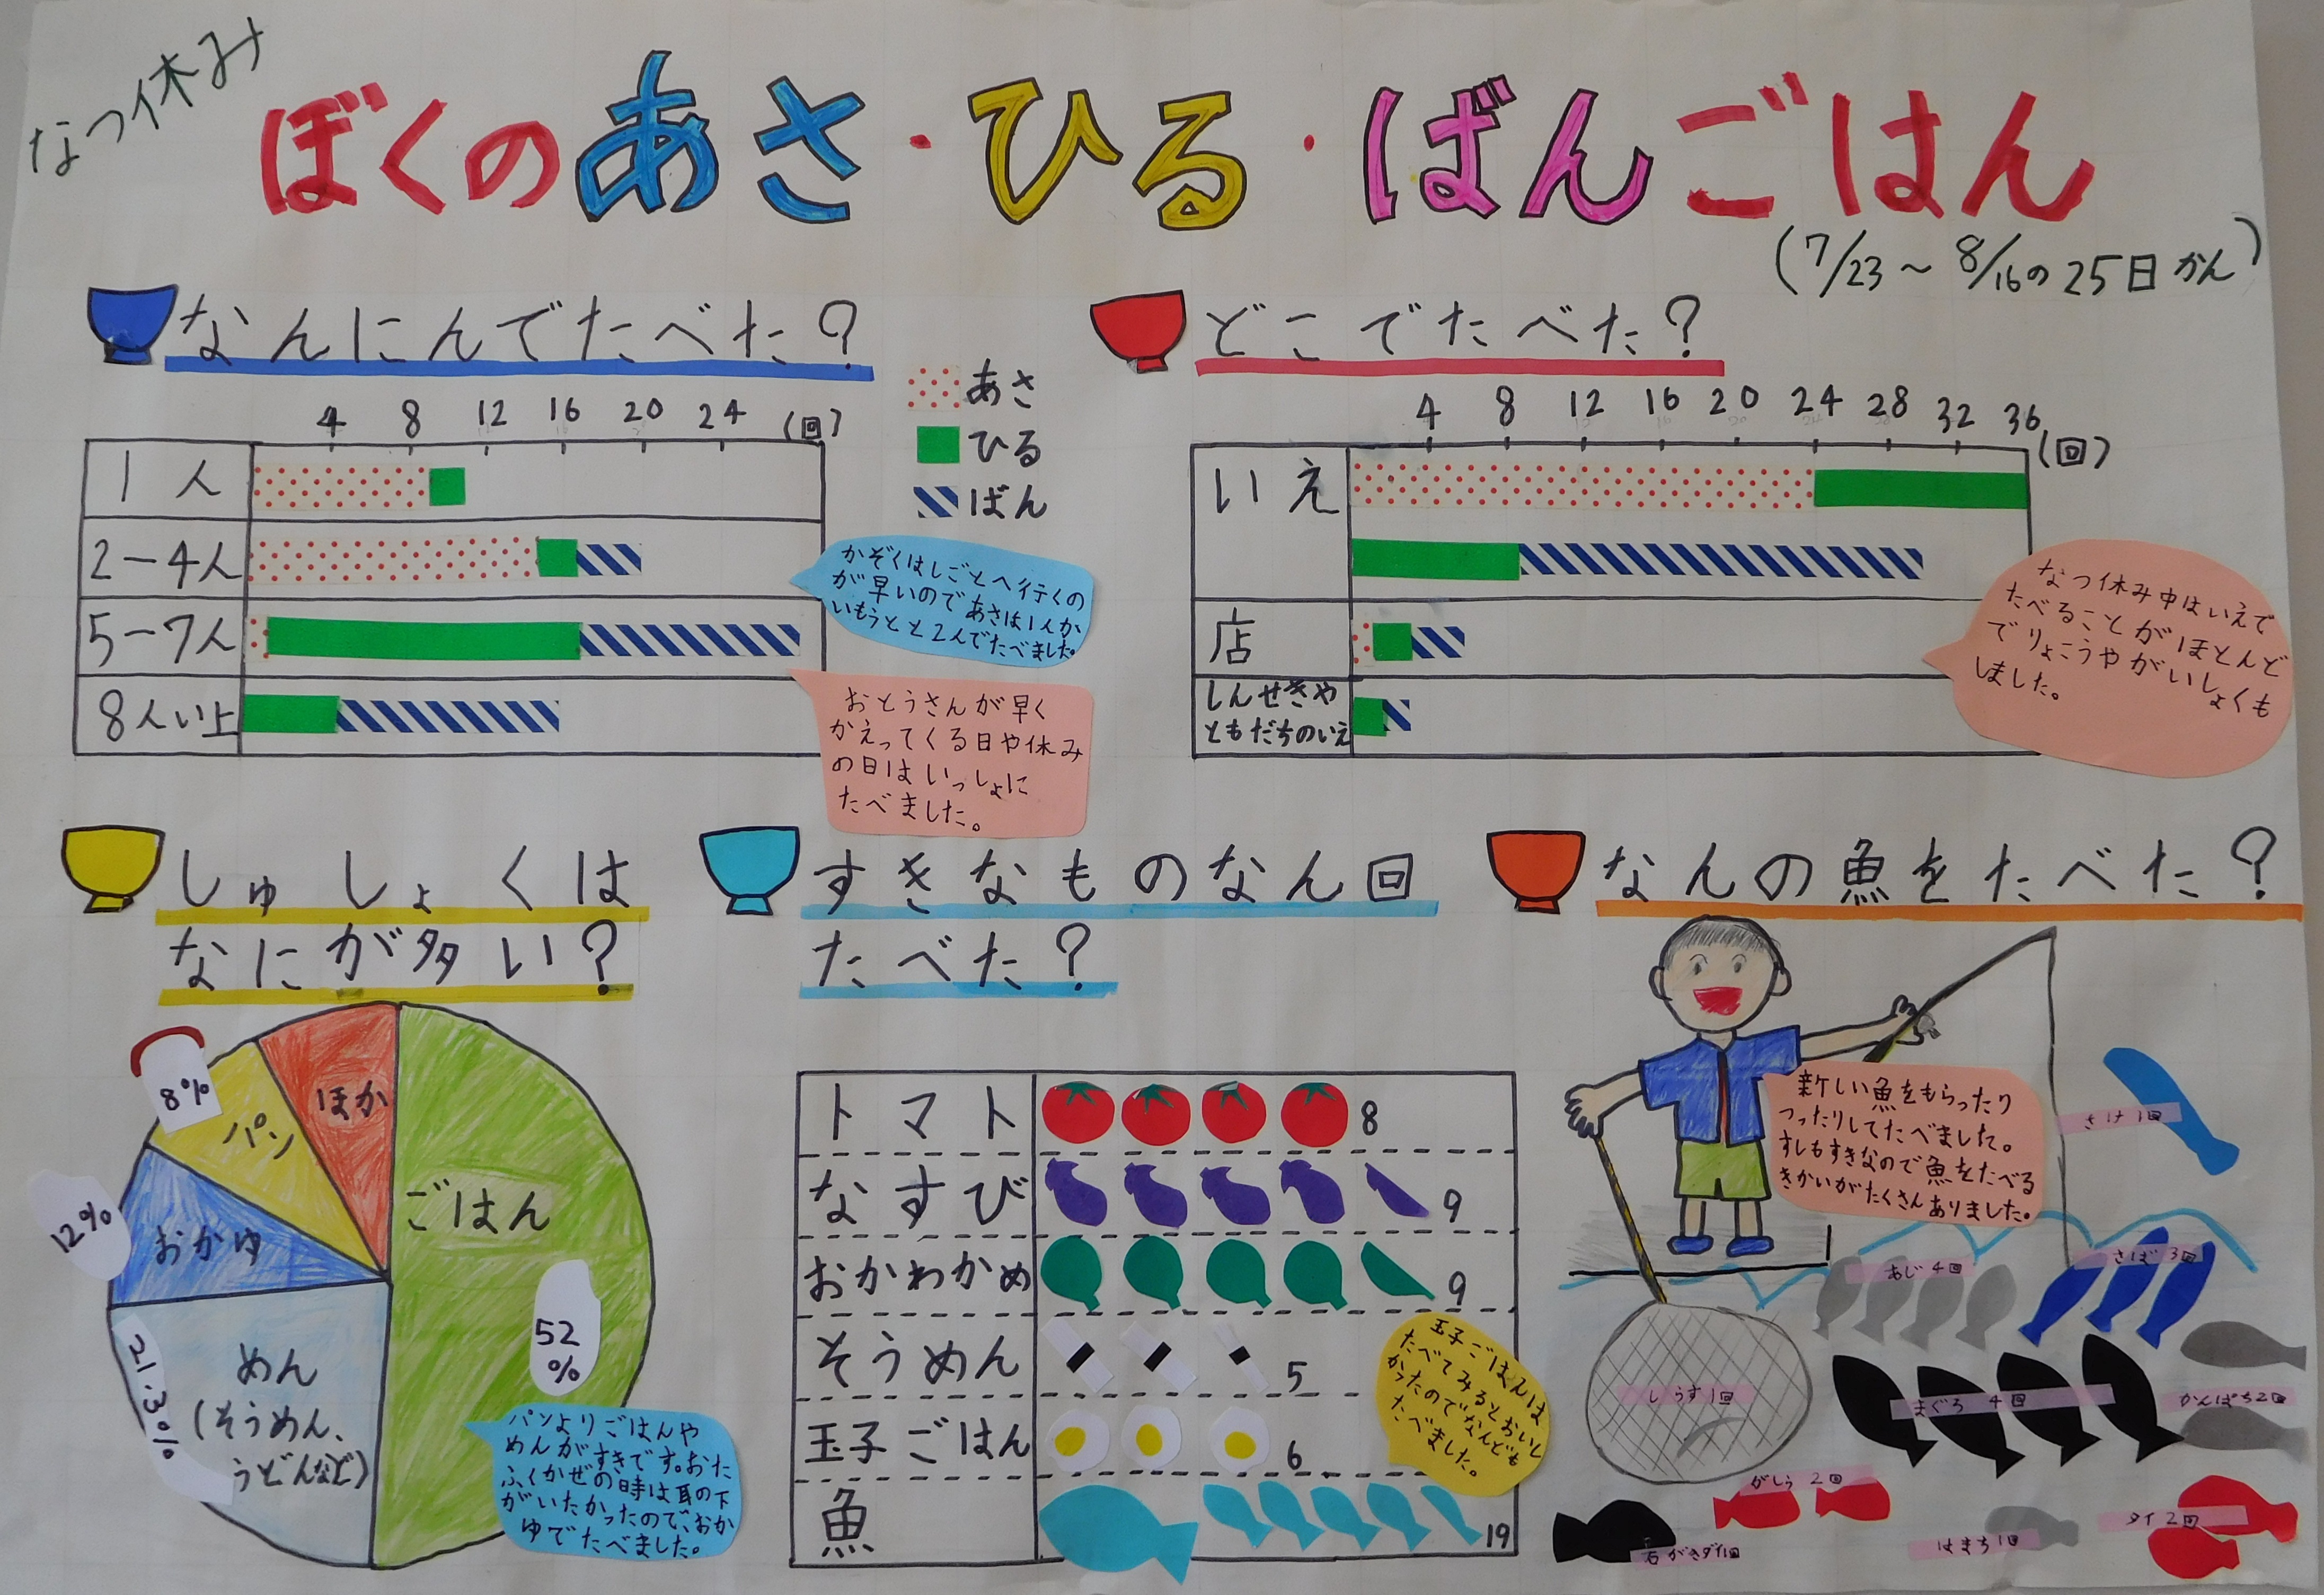 なつ休み
ぼくのあさ・ひる・ばんごはん
(7/23〜8/16の25日かん)
なんにんでたべた?
あさ
ひる
ばん
4 8 12 16 20 24 (回)
1人
2-4人
5-7人
8人い上
かぞくはしごとへ行くの
が早いのであさは1人か
いもうとと2人でたべました。
おとうさんが早く
かえってくる日や休み
の日はいっしょに
たべました。
どこでたべた?
4 8 12 16 20 24 28 32 36
(回)
いえ
店
しんせきや
ともだちのいえ
なつ休み中はいえで
たべることがほとんど
でりょこうやがいしょくも
しました。
しゅしょくは
なにが多い?
ほか
8%
パン
ごはん
12%
おかゆ
52
%
21.3%
めん
(そうめん、
うどんなど)
パンよりごはんや
めんがすきです。おた
ふくかぜの時は耳の下
がいたかったので、おか
ゆでたべました。
すきなものなん回
たべた?
トマト 8
なすび 9
おかわかめ 9
そうめん 5
玉子ごはん 6
魚 19
玉子ごはんは
たべてみるとおいし
かったのでなんども
たべました。
なんの魚をたべた?
新しい魚をもらったり
つったりしてたべました。
すしもすきなので魚をたべる
きかいがたくさんありました。
さけ1回
あじ4回
さば3回
しらす1回
まぐろ4回
かんぱち2回
がしら2回
石がきダイ1回
はまち1回
タイ2回